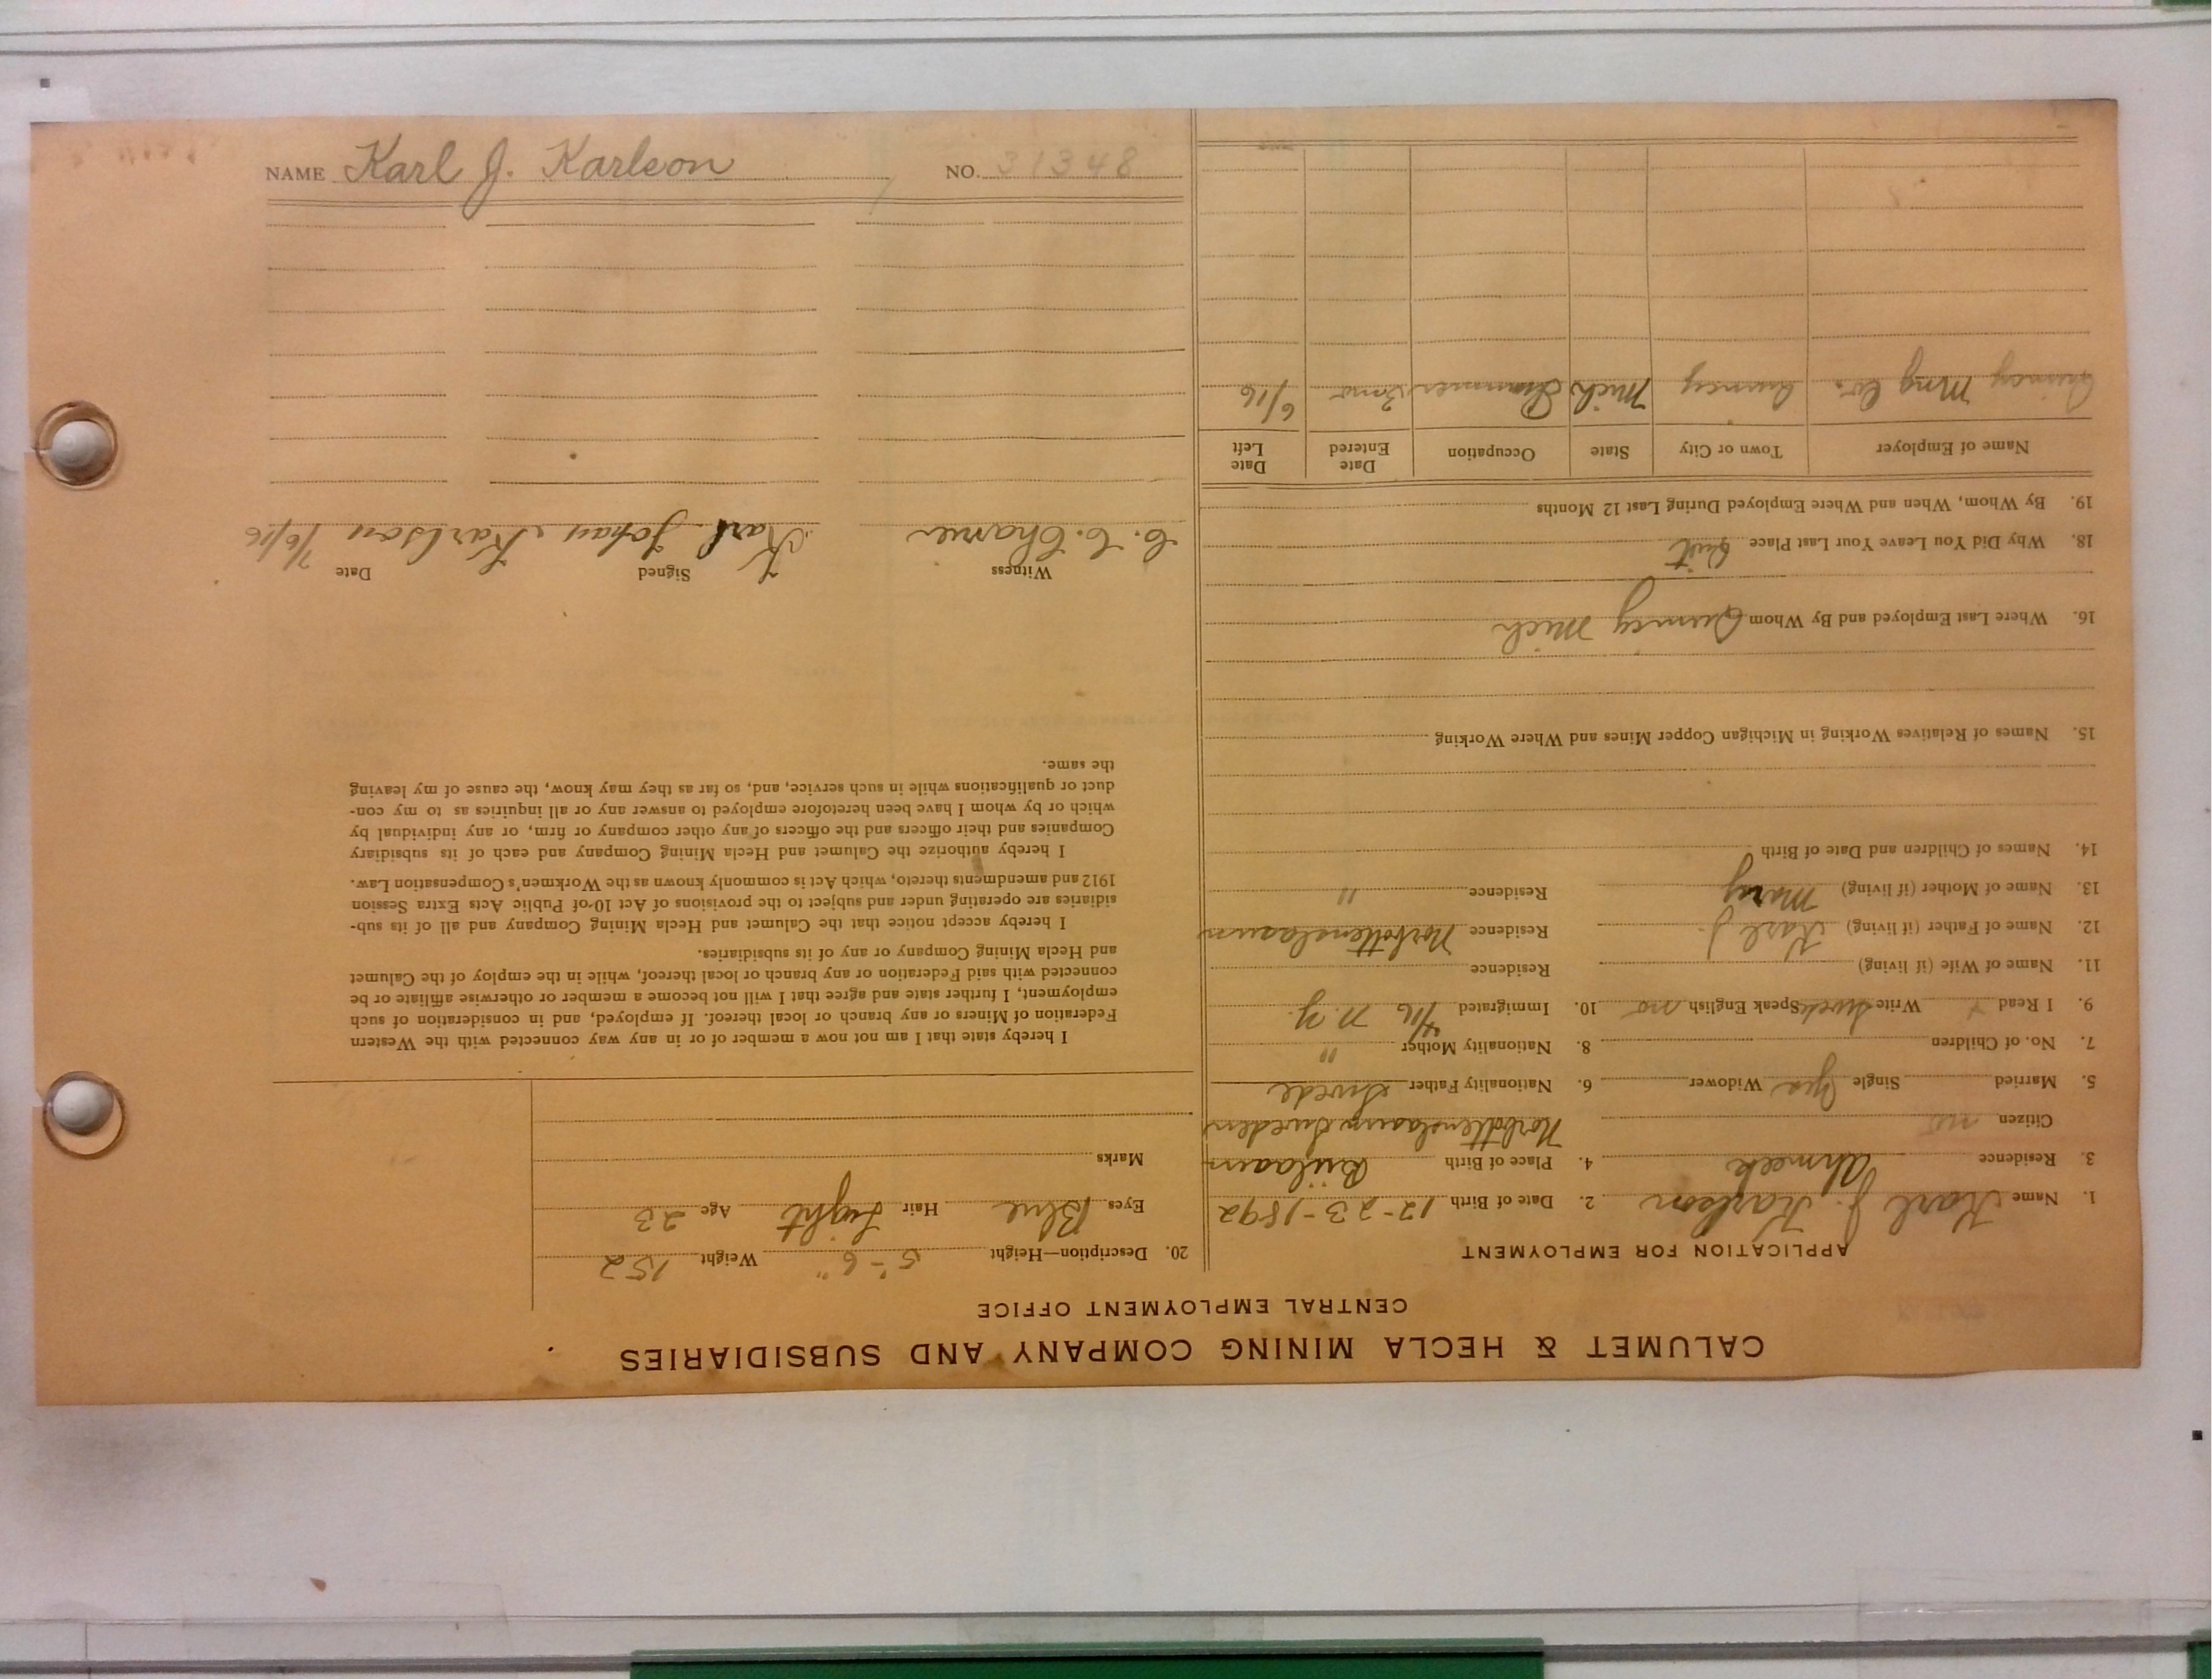 NAME Karl J. Karlson NO. 31348
CALUMET & HECLA MINING COMPANY AND SUBSIDIARIES
CENTRAL EMPLOYMENT OFFICE
APPLICATION FOR EMPLOYMENT
1. Name Karl J. Karlson 2. Date of Birth 12-23-1892
3. Residence Ahmeek 4. Place of Birth
Citizen no Norbottenslaun Sweden
5. Married Single Yes Widower 6. Nationality Father Swede
7. No. of Children 8. Nationality Mother "
9. I Read Write Swede Speak English no 10. Immigrated 4/16 N.Y.
11. Name of Wife (if living) Residence
12. Name of Father (if living) Karl J. Residence Norbottenslaun
13. Name of Mother (if living) Mary Residence "
14. Names of Children and Date of Birth
15. Names of Relatives Working in Michigan Copper Mines and Where Working
16. Where Last Employed and By Whom Quincy Mich
18. Why Did You Leave Your Last Place Quit
19. By Whom, When and Where Employed During Last 12 Months
Name of Employer Town or City State Occupation Date Entered Date Left
Quincy Mng Co. Quincy Mich Trammer 3 mo 6/16
20. Description—Height 5'-6" Weight 152
Eyes Blue Hair Light Age 23
Marks
I hereby state that I am not now a member of or in any way connected with the Western
Federation of Miners or any branch or local thereof. If employed, and in consideration of such
employment, I further state and agree that I will not become a member or otherwise affiliate or be
connected with said Federation or any branch or local thereof, while in the employ of the Calumet
and Hecla Mining Company or any of its subsidiaries.
I hereby accept notice that the Calumet and Hecla Mining Company and all of its sub-
sidiaries are operating under and subject to the provisions of Act 10 of Public Acts Extra Session
1912 and amendments thereto, which Act is commonly known as the Workmen's Compensation Law.
I hereby authorize the Calumet and Hecla Mining Company and each of its subsidiary
Companies and their officers and the officers of any other company or firm, or any individual by
which or by whom I have been heretofore employed to answer any or all inquiries as to my con-
duct or qualifications while in such service, and, so far as they may know, the cause of my leaving
the same.
Witness Signed Date
C. C. Karl Johan Karlson 7/6/16